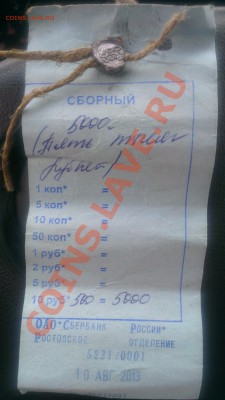 COINS.LAVE.RU
СБОРНЫЙ
5000-
(Пять тысяч
рублей)
1 коп* =
5 коп* =
10 коп* =
50 коп* =
1 руб* =
2 руб* =
5 руб* =
10 руб* 500 = 5000
ОАО "СБЕРБАНК РОССИИ"
РОСТОВСКОЕ ОТДЕЛЕНИЕ
5221/0001
10 АВГ 2013
COINS.LAVE.RU